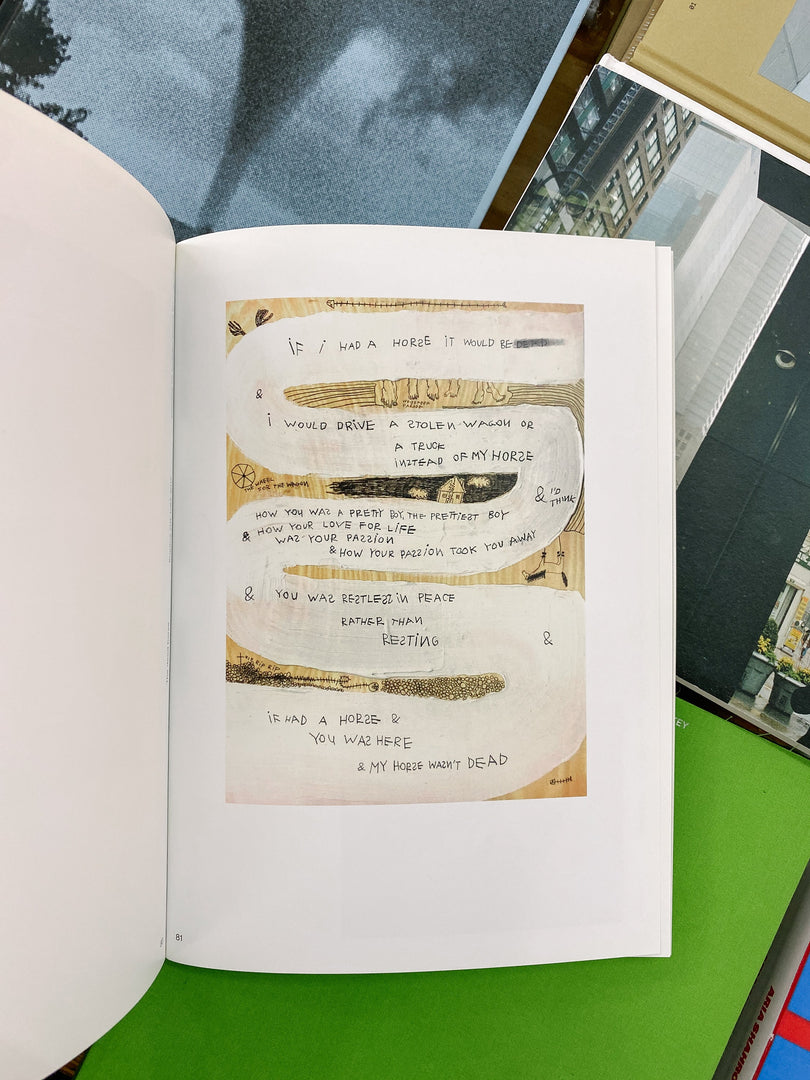 iF i HAD A HORSE iT WOULD BE DEAD
&
i WOULD DRiVE A STOLEN WAGON OR
A TRUCK
iNSTEAD OF MY HORSE
THE WHEEL
FOR THE WAGON
& I'D
THiNK
HOW YOU WAS A PRETTY BOY, THE PRETTIEST BOY
& HOW YOUR LOVE FOR LiFE
WAS YOUR PASSiON
& HOW YOUR PASSiON TOOK YOU AWAY
& YOU WAS RESTLESS iN PEACE
RATHER THAN
RESTiNG
&
RIP RIP
iF HAD A HORSE &
YOU WAS HERE
& MY HORSE WASN'T DEAD
81